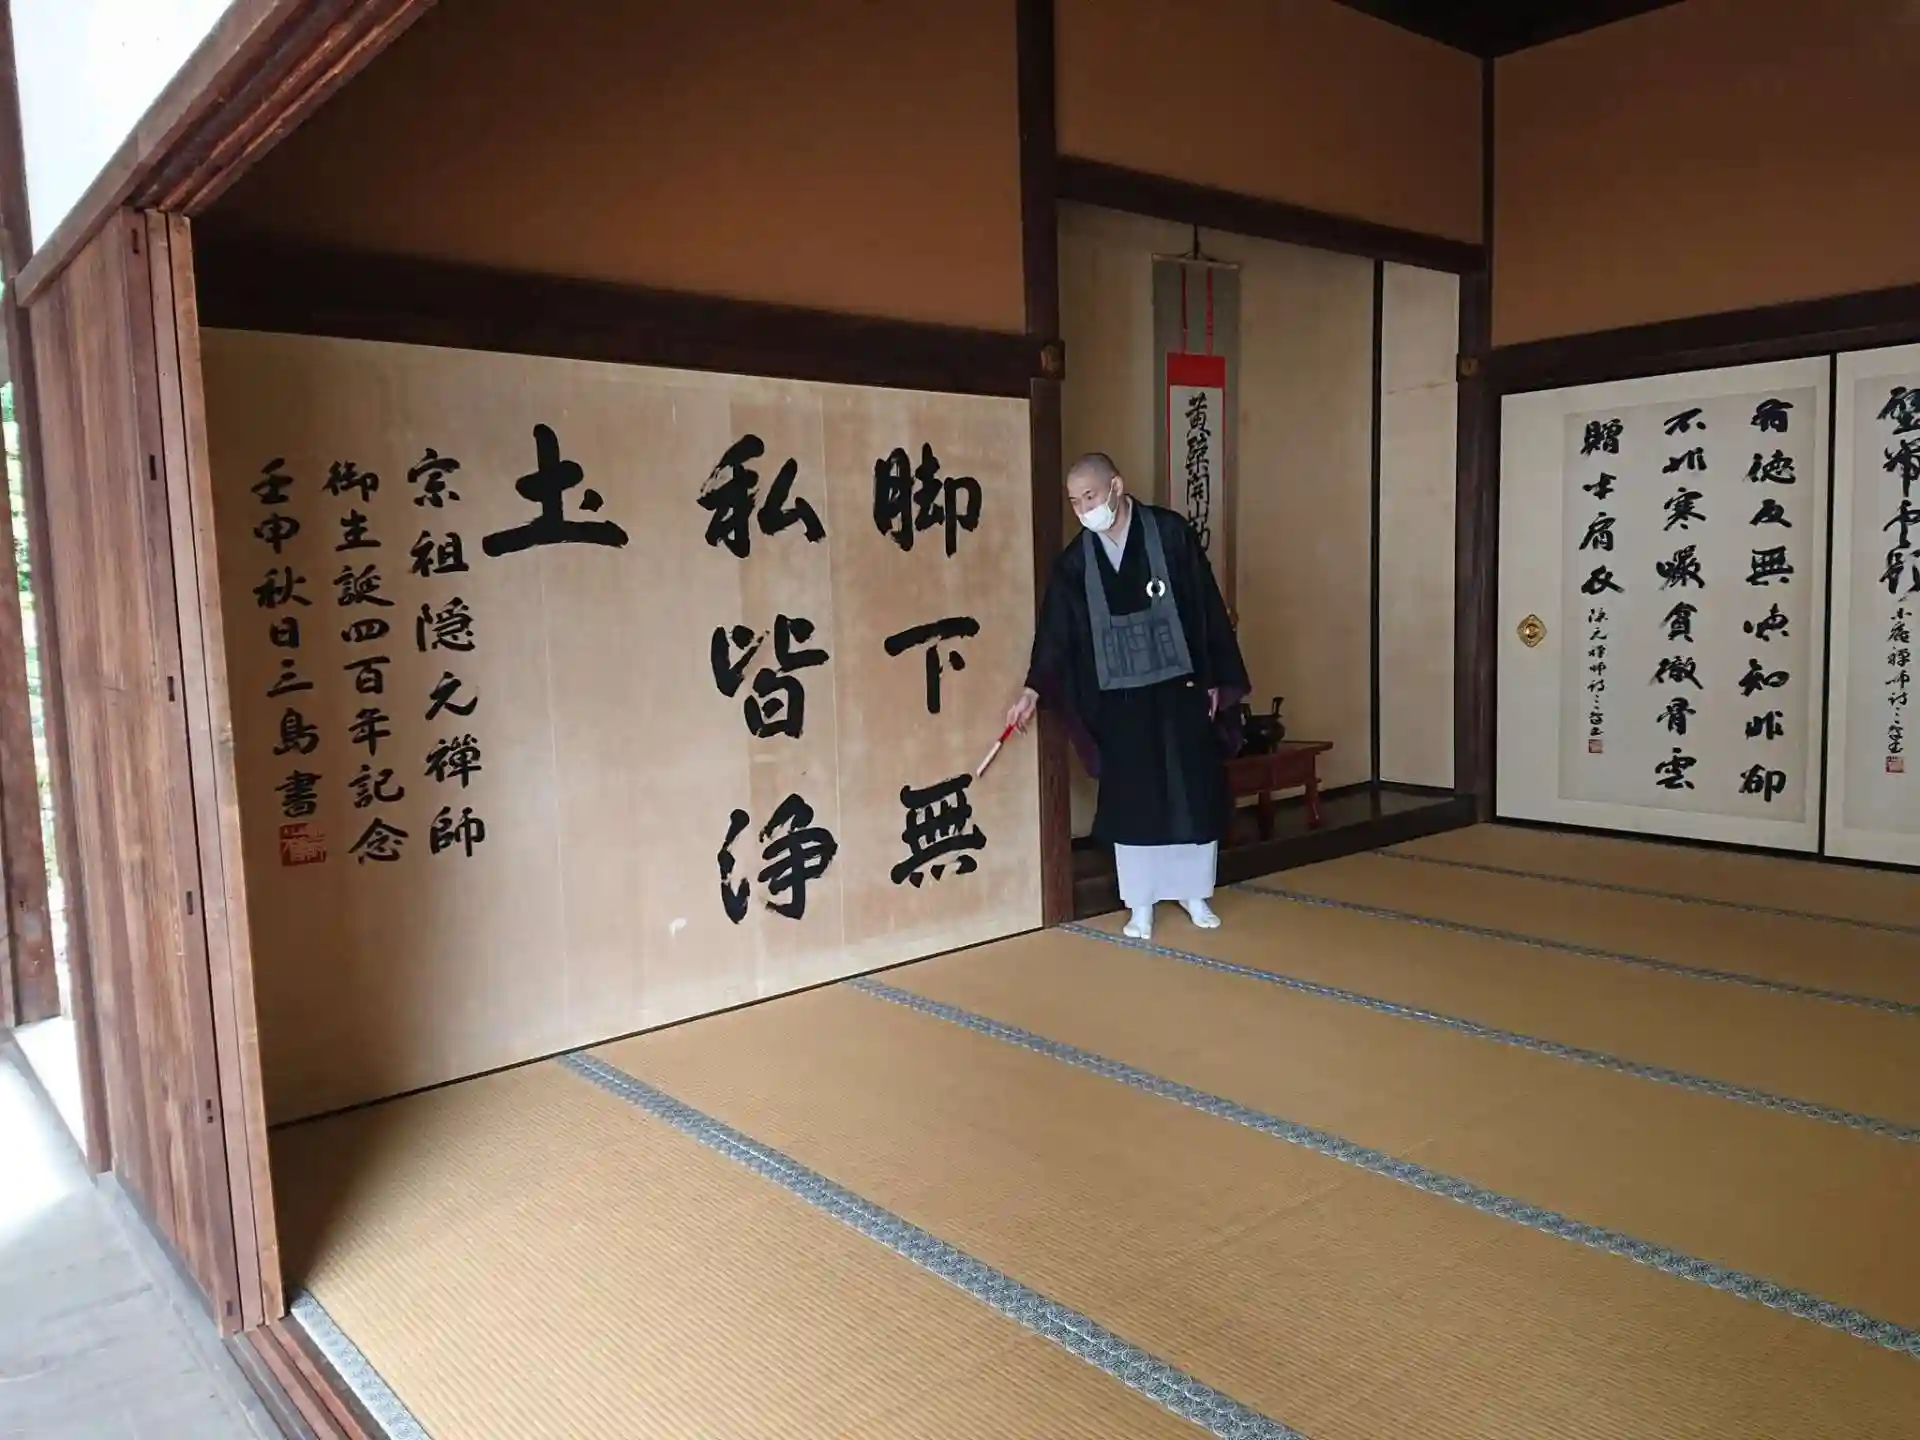 脚下無
私皆浄
土
宗祖隠元禅師
御生誕四百年記念
壬申秋日三島書
黄檗開山
有徳反無嗔知非却
不非寒囊貪徹骨雲
贈士肩衣
隠元禅師詩